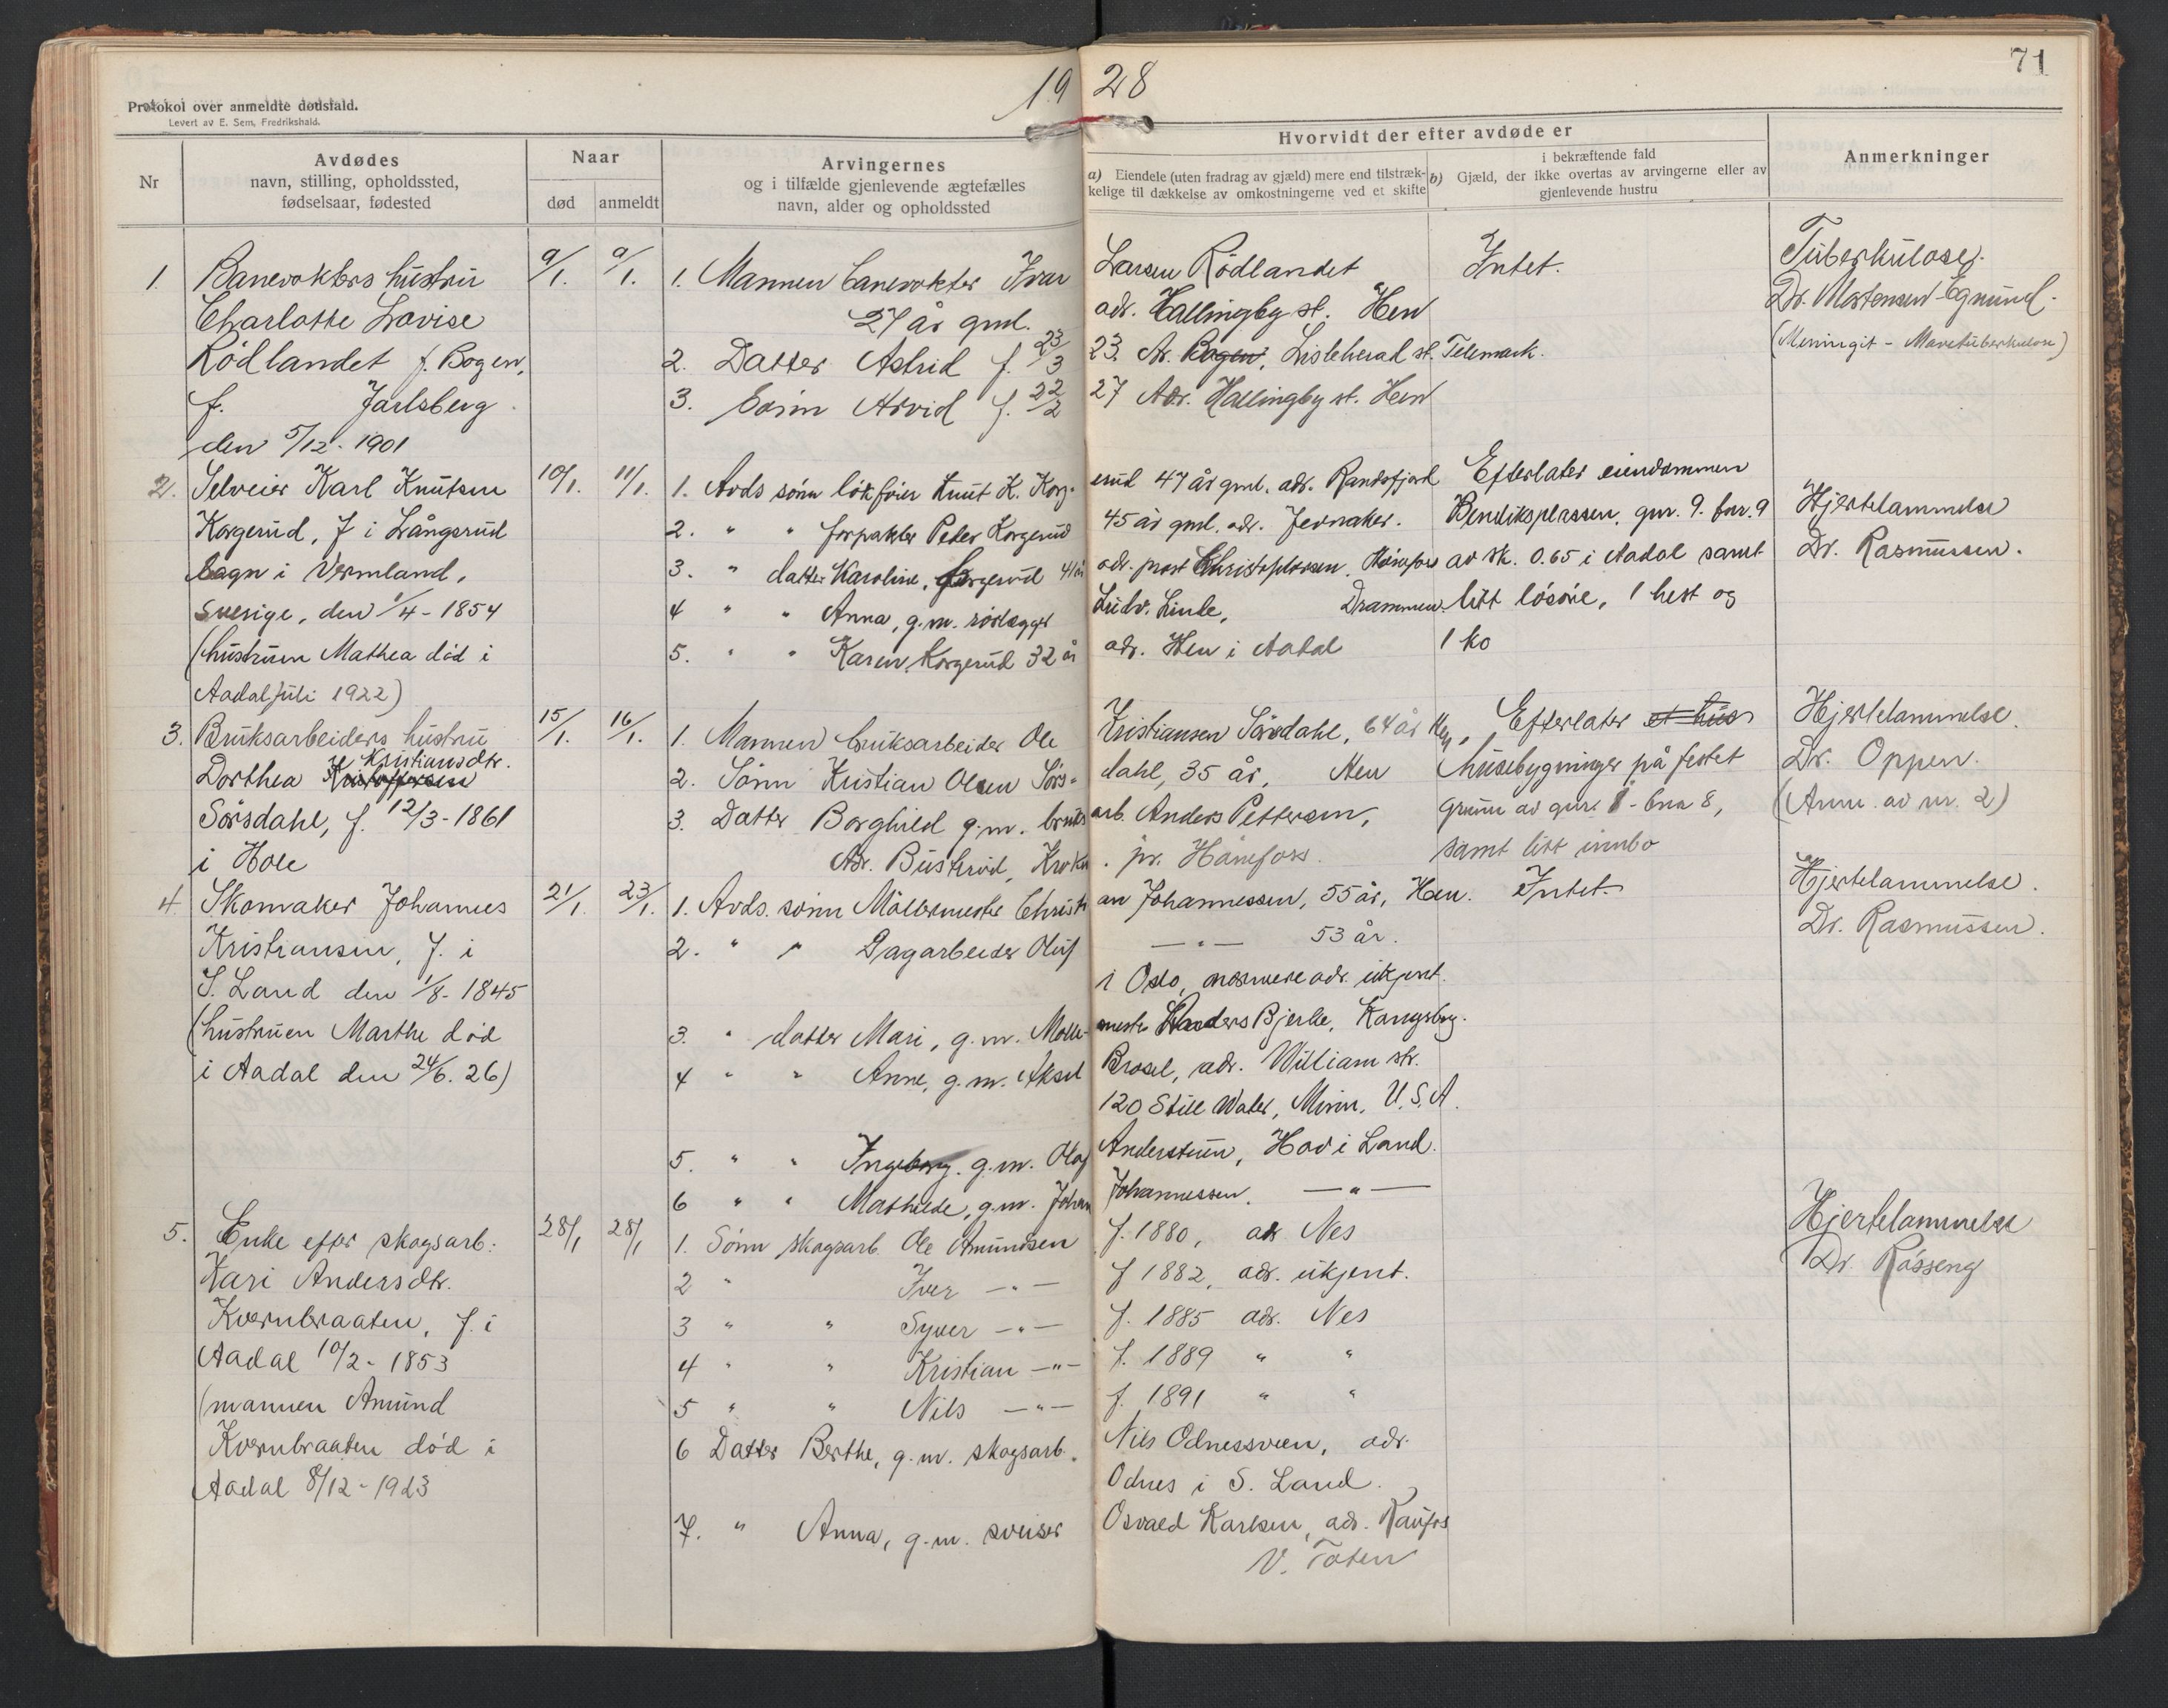 71
19 28
Protokol over anmeldte dødsfald.
Levert av E. Sem, Fredrikshald.
Nr
Avdødes
navn, stilling, opholdssted,
fødselsaar, fødested
Naar
død anmeldt
Arvingernes
og i tilfælde gjenlevende ægtefælles
navn, alder og opholdssted
Hvorvidt der efter avdøde er
a) Eiendele (uten fradrag av gjæld) mere end tilstræk-
kelige til dækkelse av omkostningerne ved et skifte
i bekræftende fald
b) Gjæld, der ikke overtas av arvingerne eller av
gjenlevende hustru
Anmerkninger
1. Banevokters hustru
Charlotte Lovise
Rödlandet f. Bogen,
f. Jarlsberg
den 5/12 - 1901
9/1. 9/1.
1. Mannen banevokter Ivar Larsen Rödlandet
27 år gml. adr. Hallingby st. Hen
2. Datter Astrid f. 23/3 23. Ar. Bogen, Lisleherad st. Telemark.
3. Sönn Arvid f. 22/2 27 Adr. Hallingby st. Hen
Intet.
Tuberkulose.
Dr. Mortensen-Egnund.
(Meningit - Mavetuberkulose)
2. Selveier Karl Knutsen
Korgerud, f i Långsrud
sogn i Vermland,
Sverige, den 1/4 - 1854
(hustruen Mathea död i
Aadal juli 1922)
10/1. 11/1.
1. Avds sönn Knut K. Korg- erud 47 år gml. adr. Randsfjord
2. " " forpakter Peter Korgerud 45 år gml. adr. Jevnaker.
3. " datter Karoline, Korgerud 41 år adr. prost Christophersen, Hönefoss
4 " " Anna, g.m. rörlegger Ludv. Linle, Drammen.
5. " " Karen Korgerud 32 år adr. Hen i Aadal
Efterlater eiendommen
Bendiksplassen, gnr. 9. bnr. 9
av sk. 0.65 i Aadal samt
litt lösöre, 1 hest og
1 ko
Hjertelammelse
Dr. Rasmussen.
3. Bruksarbeiders hustru
Dorthea Kristiansdtr.
Sörsdahl, f. 12/3 - 1861
i Hole
15/1. 16/1.
1. Mannen bruksarbeider Ole Kristiansen Sörsdahl, 64 år Hen,
2. Sönn Kristian Olsen Sörs- dahl, 35 år, Hen
3. Datter Borghild g.m. bruks arb. Anders Pettersen,
Adr. Busterud, Krok . pr. Hönefoss.
Efterlater et hus
husebygninger på festet
grunn av gnr. 8 - bnr 8,
samt litt innbo
Hjertelammelse.
Dr. Oppen.
(Anm. av nr. 2)
4. Skomaker Johannes
Kristiansen, f. i
S. Land den 1/8 - 1845
(hustruen Marthe död
i Aadal den 24/6. 26)
21/1. 23/1.
1. Avds. sönn Möllermester Christi an Johannessen, 55 år, Hen.
2. " " Dagarbeider Oluf — " — 53 år.
i Oslo, nærmere adr. ukjent.
3. " datter Mari, g.m. Mölle- mestr Anders Bjerke, Kongsberg.
4 " " Anne, g.m. Aksel Brosel, adr. William str.
120 Still Water, Minn. U.S.A.
5. " " Ingeborg. g.m. Olaf Anderstuen, Hov i Land.
6 " " Mathilde, g.m. Johan Johannessen. — " —
Intet.
Hjertelammelse.
Dr. Rasmussen.
5. Enke efter skogsarb.
Kari Andersdtr.
Kvernbraaten, f. i
Aadal 10/2 - 1853
(mannen Amund
Kvernbraaten död i
Aadal 8/12 - 1923
28/1 28/1
1. Sönn skogsarb. Ole Amundsen f. 1880, adr Nes
2 " Iver — " — f 1882, adr. ukjent.
3 " " Syver — " — f. 1885 adr. Nes
4 " " Kristian — " — f. 1889 " "
5 " " Nils — " — f. 1891 " "
6 Datter Berthe, g.m. skogsarb. Nils Odnessveen, adr.
Odnes i S. Land.
7. " Anna, g.m. sveiser Osvald Karlsen, adr. Raufos
V. Toten
Hjertelammelse
Dr. Rösseng